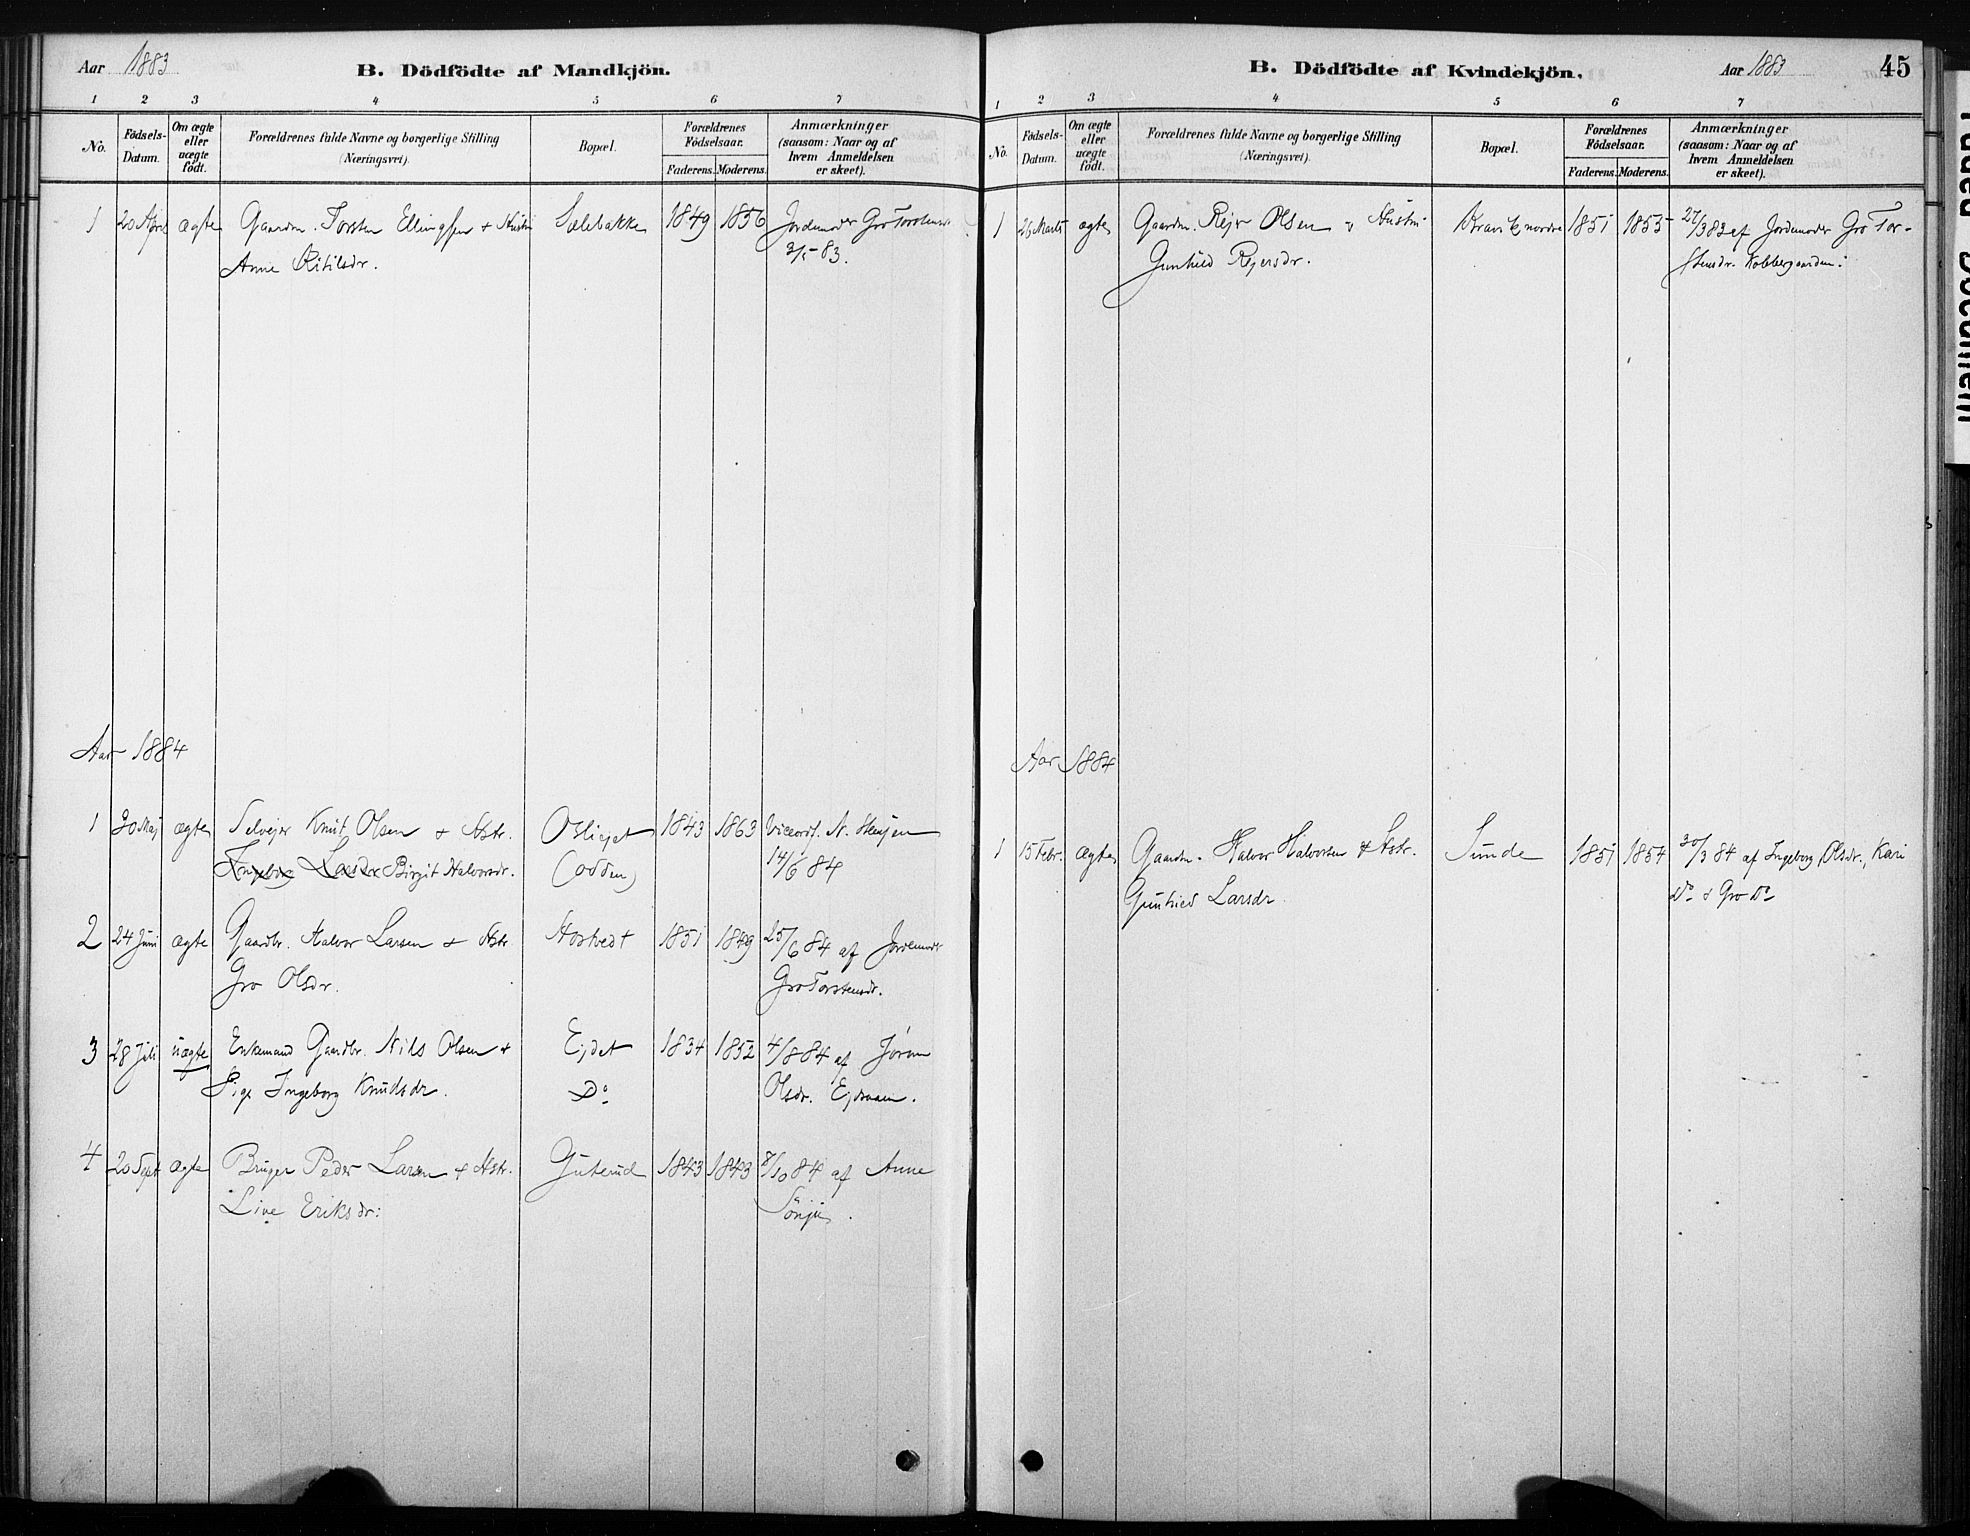 Aar 1883
B. Dödfödte af Mandkjön.
1 2 3 4 5 6 7
No. Födsels-Datum. Om ægte eller uægte födt. Forældrenes fulde Navne og borgerlige Stilling (Næringsvei). Bopæl. Forældrenes Födselsaar. Faderens. Moderens. Anmærkninger (saasom: Naar og af hvem Anmeldelsen er skeet).
1 20 April ægte Gaardm. Torsten Ellingsen + Hustru Sælebakke 1849 1856 Jordemoder Gro Torstensdr
Anne Kitilsdr. 2/5-83.
Aar 1884
1 30 Maj ægte Selvejer Knut Olsen + Hstr. Osliejet 1843 1863 Viceord. N.
Ingebor Larsdr Birgit Halvorsdr. (odden) 14/6 84
2 24 Juni ægte Gaardbr. Halvor Larsen + Hstr 1851 1849 25/6 84 af Jordemodr
Gro Olsdr. Gro Torstensdr.
3 28 Juli uægte Enkemand Gaardbr. Nils Olsen + Ejdet 1834 1852 4/8 84 af Jøran
Pige Ingeborg Knudsdr. Do Olsdr.
4 20 Sept ægte Bruger Peder Larsen + Hstr. Guterud 1843 1843 8/10 84 af Anne
Live Eriksdr:
B. Dödfödte af Kvindekjön.
Aar 1883
45
1 2 3 4 5 6 7
No. Födsels-Datum. Om ægte eller uægte födt. Forældrenes fulde Navne og borgerlige Stilling (Næringsvei). Bopæl. Forældrenes Födselsaar. Faderens. Moderens. Anmærkninger (saasom: Naar og af hvem Anmeldelsen er skeet).
1 26 Marts ægte Gaardm. Rejer Olsen & Hustru Kravik nordre 1851 1855 27/3 83 af Jordemoder Gro Tor-
Gunhild Rejersdr. stensdr. Kobbergaarden.
Aar 1884
1 15 Febr. ægte Gaardm. Halvor Halvorsen + Hstr. Sunde 1851 1854 30/3 84 af Ingeborg Olsdr., Kari
Gunhild Larsdr. Do & Gro Do